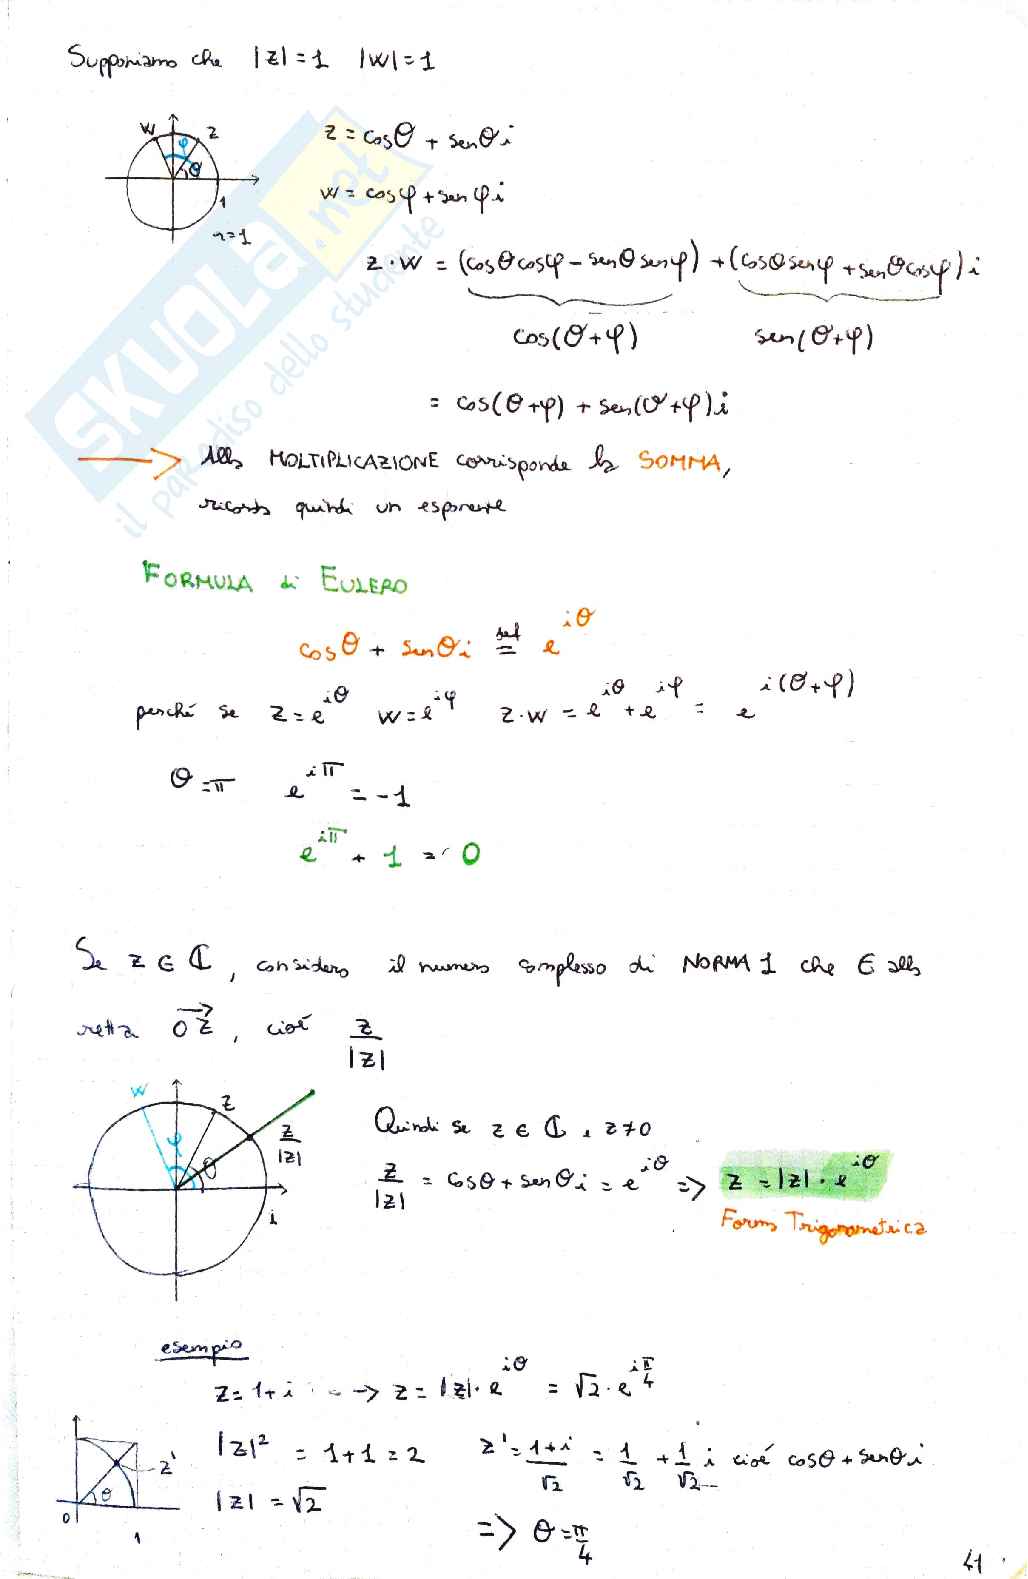 Supponiamo che |z|=1 |w|=1
w z
φ θ
1
r=1
z = cosθ + senθi
w = cosφ + senφi
z·w = (cosθcosφ - senθsenφ) + (cosθsenφ + senθcosφ)i
cos(θ+φ) sen(θ+φ)
= cos(θ+φ) + sen(θ+φ)i
SKUOLA.net
il paradiso dello studente
→ Alla MOLTIPLICAZIONE corrisponde la SOMMA,
ricorda quindi un esponente
FORMULA di EULERO
cosθ + senθi =(def) e^{iθ}
perché se z=e^{iθ} w=e^{iφ} z·w = e^{iθ} + e^{iφ} = e^{i(θ+φ)}
θ=π e^{iπ} = -1
e^{iπ} + 1 = 0
Se z ∈ ℂ, considero il numero complesso di NORMA 1 che ∈ alla
retta 0z→, cioé z/|z|
w z
φ θ z/|z|
i
Quindi se z ∈ ℂ, z≠0
z/|z| = cosθ + senθi = e^{iθ} => z = |z|·e^{iθ}
Forma Trigonometrica
esempio
z=1+i --> z=|z|·e^{iθ} = √2·e^{iπ/4}
|z|² = 1+1=2 z' = (1+i)/√2 = 1/√2 + 1/√2 i cioé cosθ + senθi
|z| = √2
=> θ=π/4
z'
θ
0 1
41